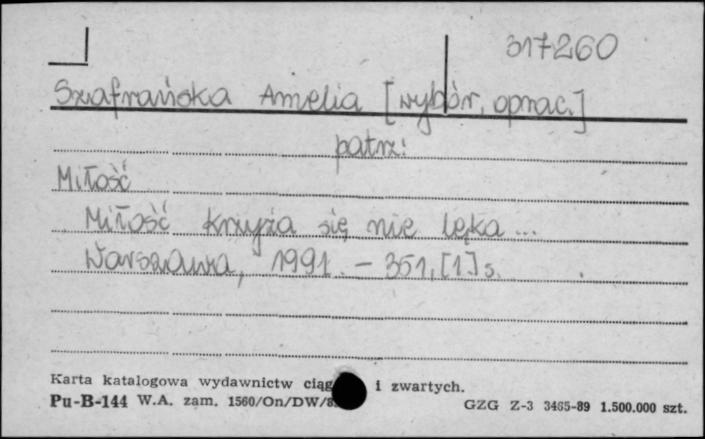 317260
Szafrańska Amelia [wybór, oprac.]
patrz:
Miłość
Miłość krzyża się nie lęka ...
Warszawa, 1991. - 351, [1] s.
Karta katalogowa wydawnictw ciąg i zwartych.
Pu-B-144 W.A. zam. 1560/On/DW/8
GZG Z-3 3465-89 1.500.000 szt.